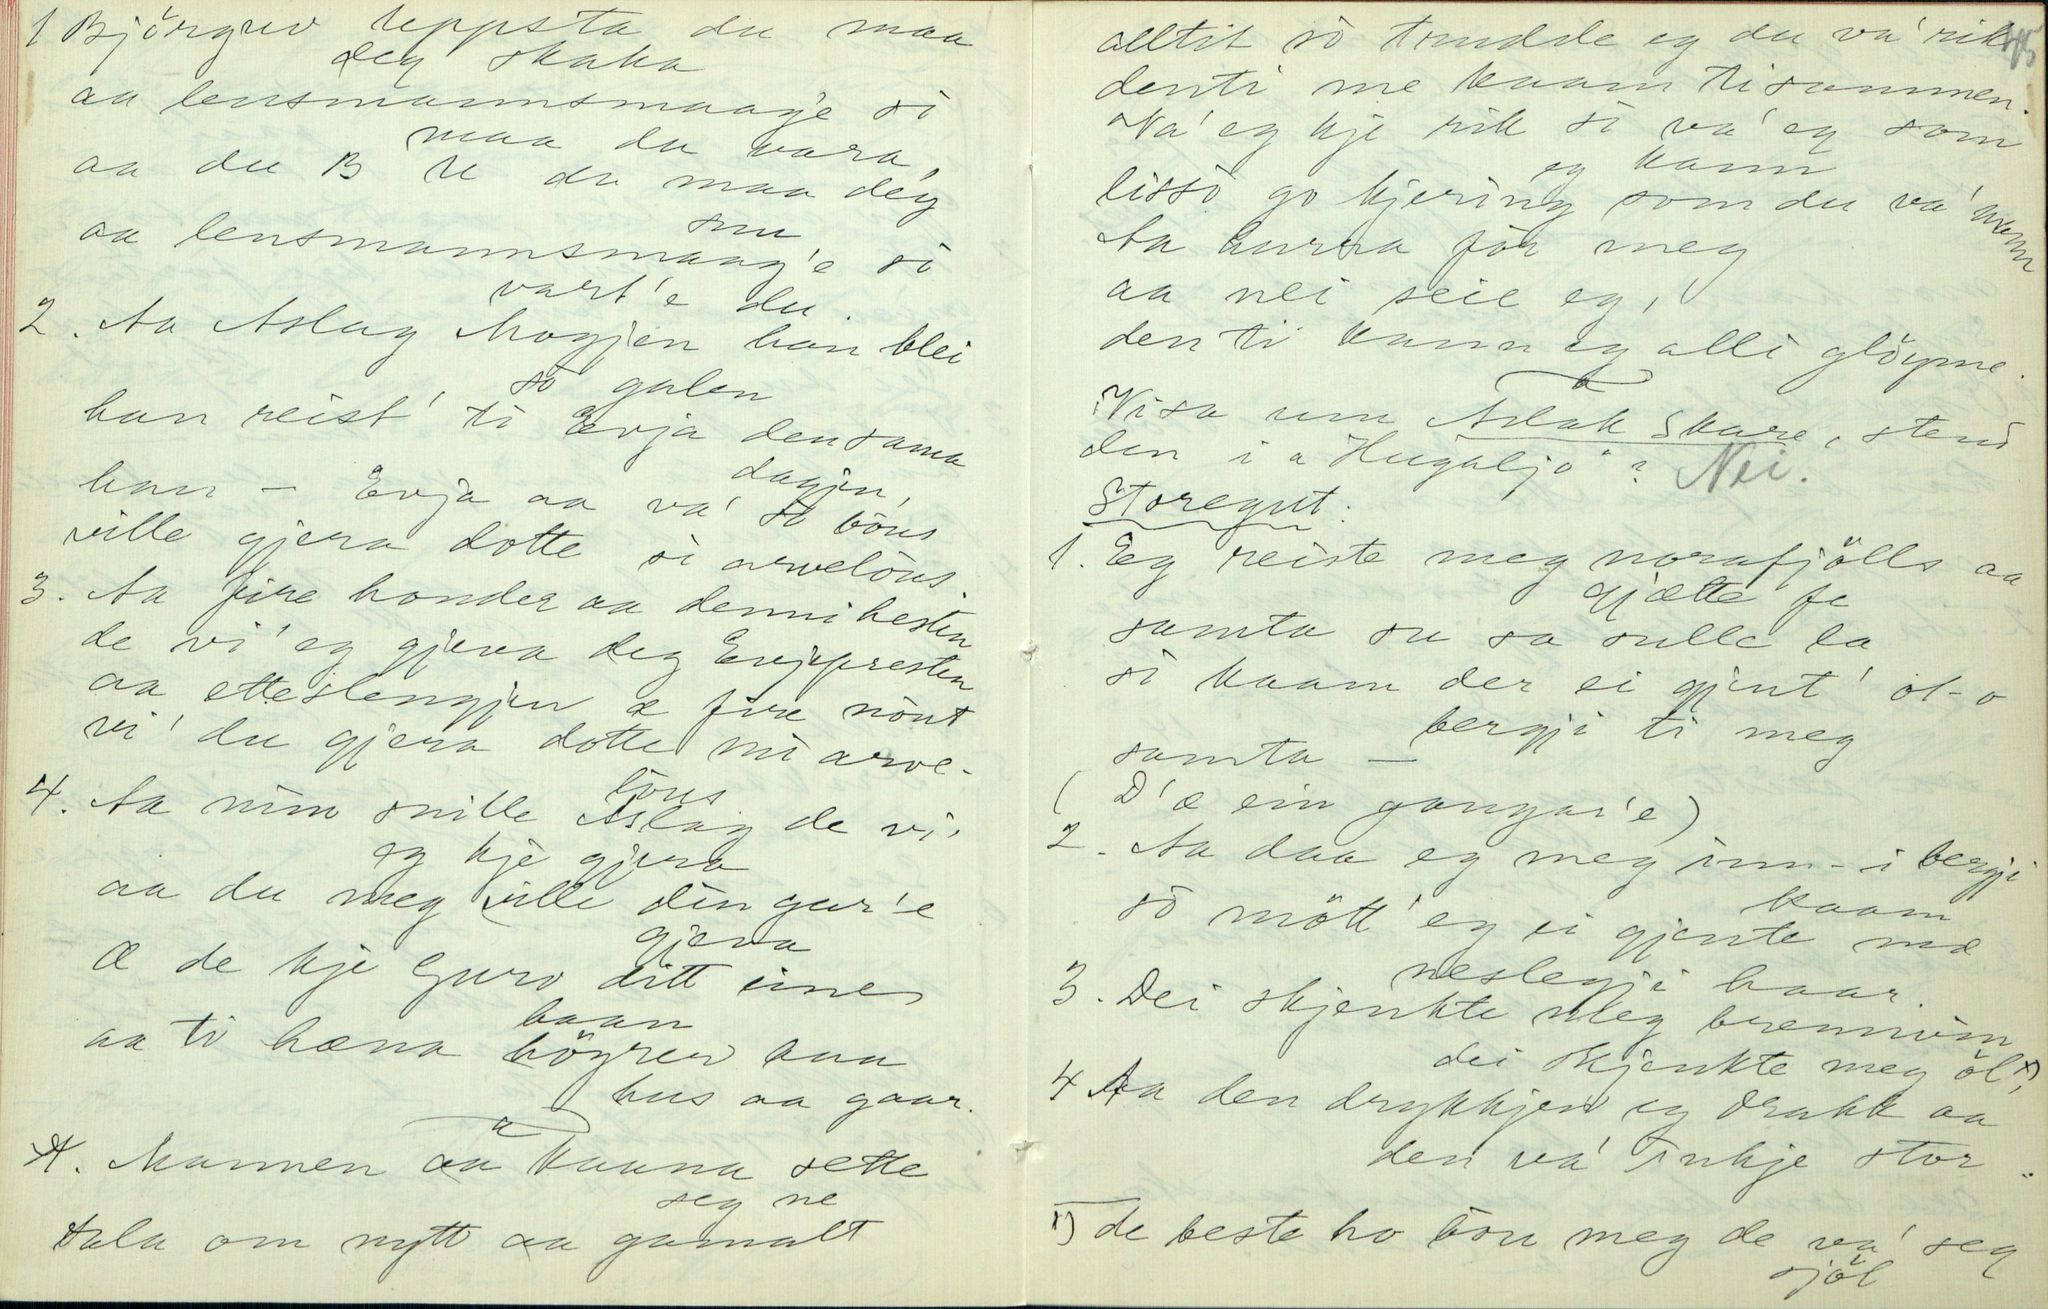 1 Björguv Uppsta du maa
deg skaka
aa lensmannsmaag'e så
maa du vara,
aa du B U du maa deg
snu
aa lensmannsmaag'e så
vart'e du.
2. Aa Aslag Mogjen han blei
så galen
han reist' ti Evja den sama
dagjen,
han – Evja aa va' så böus
ville gjera dotte si arvelöus.
3. Aa fire honder aa denni hesten
de vi' eg gjeva deg Evjepresten
aa etteslengjen æ fire nöut
vi' du gjera dotte mi arve-
löus
4. Aa min snille Aslag de vi'
eg kje gjera
aa du meg ville din gar'e
gjeva
Æ de kje Guro ditt eines
baan
aa ti hæna höyrer baa
hus aa gaar.
A. Mannen aa kaana sette
seg ne
tala om nytt aa gamalt
45
alltit så trudde eg du va' rik
denti me kaam tisammen.
Va' eg kje rik så va' eg som
eg kann
lisså go kjering som du va' mann
Aa hurra för meg
aa nei seie eg,
denti kann eg alli glöyme.
Visa um Aslak Skare, stend
den i "Hugaljo"? Nei.
Storegut.
1. Eg reiste meg norafjölls aa
gjætte fe
sumta su sa sulle la
så kaam der ei gjent' ot-o
bergji ti meg
sumta –
(D'æ ein gangar'e)
2. Aa daa eg meg inn-i bergji
kaam
så mött' eg ei gjente mæ
neslegji haar.
3. Dei skjenkte meg brennivin
dei skjenkte meg öl x),
4 Aa den drykkjen eg drakk aa
den va' inkje stor.
x) de beste ho bou meg de va' seg
sjöl